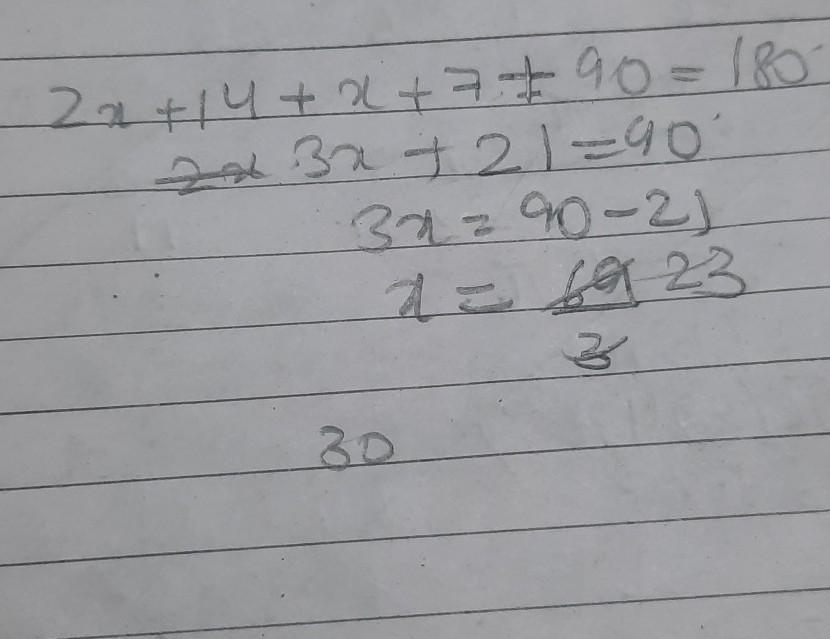 2x + 14 + x + 7 + 90 = 180
3x + 21 = 90
3x = 90 - 21
x = 69/3 23
30